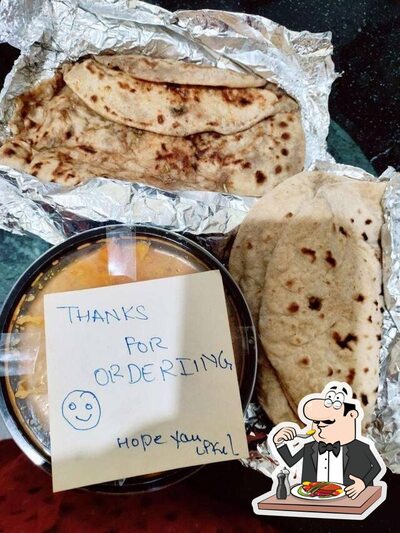 THANKS
FOR
ORDERIING
Hope you